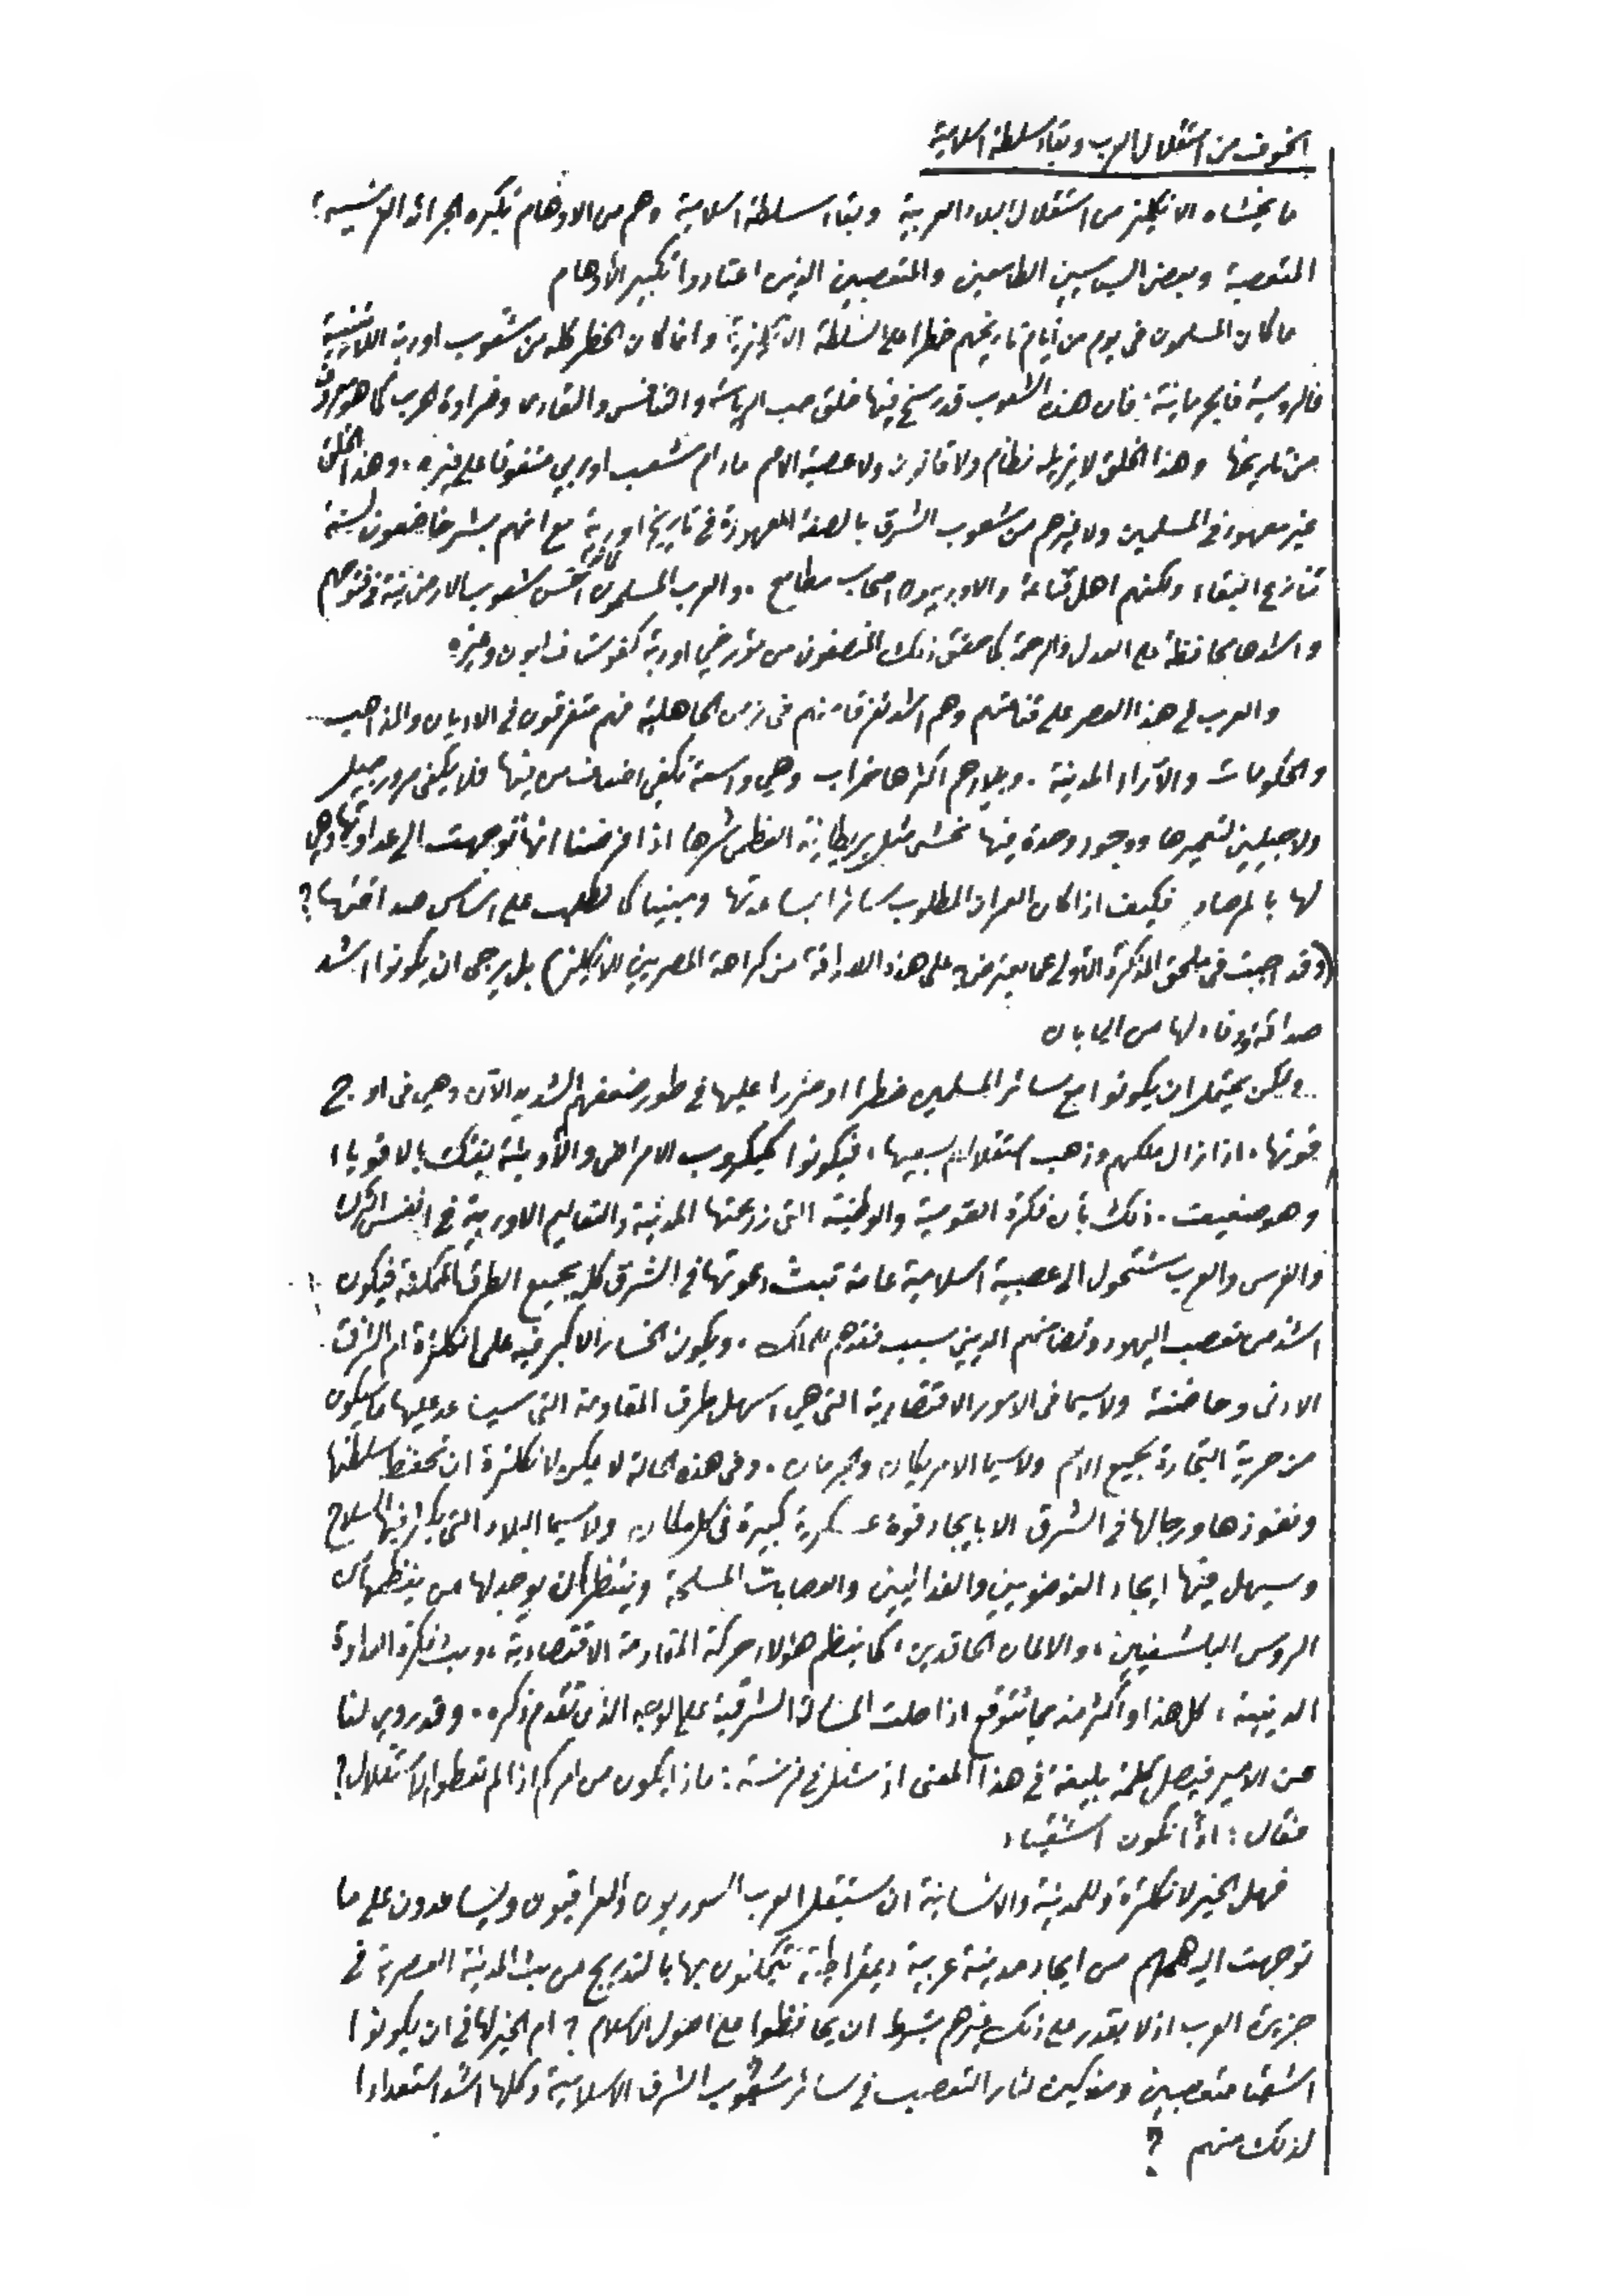 الخوف من استقلال العرب وبقاء سلطة اسلامية
ما يخشاه الانكليز من استقلال البلاد العربية وبقاء سلطة اسلامية وهم من الاوهام تكبره الجرائد الفرنسية
المتعصبة وبعض السياسيين الطامعين والمتعصبين الذين اعتادوا تكبير الأوهام
ما كان المسلمون في يوم من أيام تاريخهم خطرا على السلطة الانكليزية وانما كان الخطر كله من شعوب اوربة اللاتينية
فالروسية فالجرمانية. فان هذه الشعوب قد رسخ فيها خلق حب الرياسة والتنافس والتعادي وضراوة الحرب كما هو معروف
من تاريخها وهذا الخلق لا يزيله نظام ولا قانون ولا عصبة الامم مادام شعب اوربي متفوقا على غيره. وهذا الخلق
غير معهود في المسلمين ولا غيرهم من شعوب الشرق بالصفة المعهودة في تاريخ اوربة مع انهم بشر خاضعون لسنة
تنازع البقاء ولكنهم اهل قناعة والاوربيون اصحاب مطامع. والعرب المسلمون كانوا شعوب الارض في فتوحهم
واشدها محافظة على العدل والرحمة كما حقق ذلك المنصفون من مؤرخي اوربة كغوستاف لبون وغيره
والعرب في هذا العصر على قناعتهم وهم اشد تفرقا منهم في زمن الجاهلية فهم متفرقون في الاديان والمذاهب
والحكومات والآراء المدنية. وبلادهم اكثرها خراب وهي واسعة تكفي اضعاف من فيها فلا يكفي مرور جيل
ولا جيلين لتعميرها ووجود وحدة فيها تخشى مثل بريطانية العظمى شرها اذا فرضنا انها توجهت الى عداوتها وهي
لها بالمرصاد فكيف اذا كان العمران المطلوب سائرا بمساعدتها ومبنيا كما نطلب على اساس صداقتها؟
(وقد اجبت في ملحق المذكرة الاولى عما يعترض به على هذه الصداقة من كراهة المصريين للانكليز) بل يرجى ان يكونوا اشد
صداقة ووفاء لها من اليابان
ولكن يحتمل ان يكونوا مع سائر المسلمين خطرا او ضررا عليها في طور ضعفهم الشديد الآن وهي في اوج
قوتها. اذا زال ملكهم وذهب استقلالهم بسببها، فيكونوا كميكروب الامراض والأوبئة يفتك بالاقوياء
وهو ضعيف. ذلك بأن فكرة القومية والوطنية التي زرعتها المدنية والتعاليم الاوربية في انفس الترك
والفرس والعرب ستتحول الى عصبية اسلامية عامة تبث دعوتها في الشرق كله بجميع الطرق الممكنة فيكون
اشد من تعصب اليهود وتضامنهم الديني بسبب فقدهم للملك. ويكون الخسار الاكبر فيه على انكلترة ام الشرق
الادنى وحاضنته ولاسيما في الامور الاقتصادية التي هي اسهل طرق المقاومة التي سيساعد عليها ما سيكون
من حرية التجارة لجميع الامم ولاسيما الامريكان والجرمان. وفي هذه الحالة لا يمكن لانكلترة ان تحفظ سلطتها
ونفوذها ورجالها في الشرق الا بايجاد قوة عسكرية كبيرة في كل مكان ولاسيما البلاد التي يكثر فيها السلاح
وسيهل فيها ايجاد الفوضويين والفدائيين والعصابات المسلحة وينتظر ان يوجد لها من ينظمها من
الروس البلشفيين، والالمان الحاقدين، كما ينظم هؤلاء حركة المقاومة الاقتصادية، وبث فكرة العداوة
الدينية، كل هذا وأكثر منه مما يتوقع اذا حلت المسألة الشرقية على الوجه الذي تقدم ذكره. وقد روي لنا
عن الامير فيصل كلمة بليغة في هذا المعنى اذ سئل في فرنسة: ماذا يكون من امركم اذا لم تعطوا الاستقلال؟
فقال: اذاً نكون اشقياء
فهل الخير لانكلترة وللمدنية والانسانية ان يستقل العرب السوريون والعراقيون ويساعدون على ما
توجهت اليه هممهم من ايجاد مدينة عربية ديمقراطية يتمكنون بها بالتدريج من بث المدنية العصرية في
جزيرة العرب اذ لا يقدر على ذلك غيرهم بشرط ان يحافظوا على اصول الاسلام؟ ام الخير لها في ان يكونوا
اشقياء متعصبين ومذكين لنار التعصب في سائر شعوب الشرق الاسلامية وكلها اشد استعدادا
لذلك منهم ؟